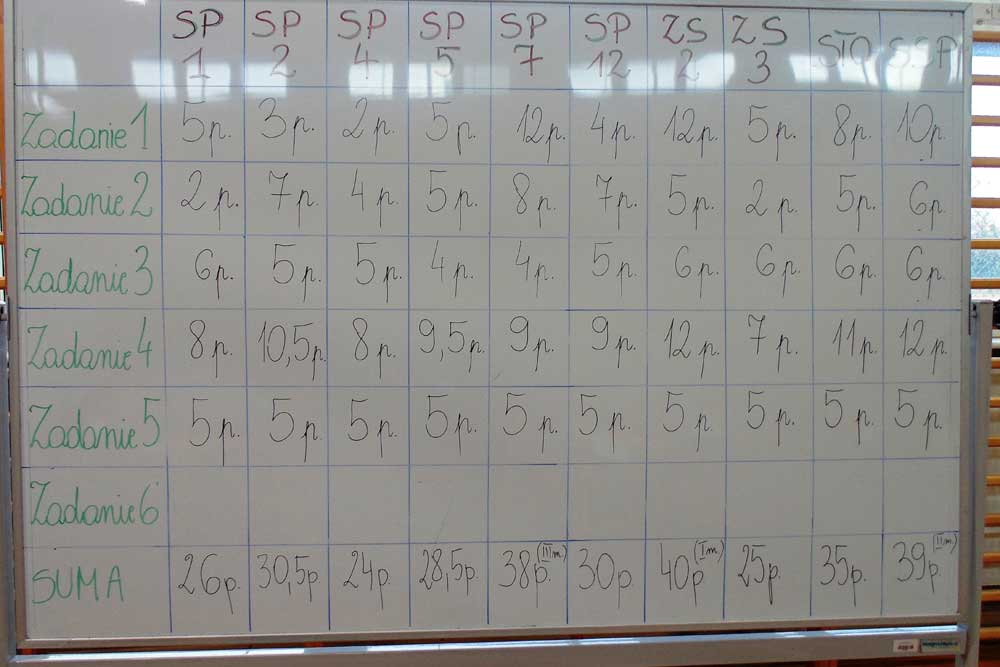 SP 1 SP 2 SP 4 SP 5 SP 7 SP 12 ZS 2 ZS 3 STO SSP
Zadanie 1 5p. 3p. 2p. 5p. 12p. 4p. 12p. 5p. 8p. 10p.
Zadanie 2 2p. 7p. 4p. 5p. 8p. 7p. 5p. 2p. 5p. 6p.
Zadanie 3 6p. 5p. 5p. 4p. 4p. 5p. 6p. 6p. 6p. 6p.
Zadanie 4 8p. 10,5p. 8p. 9,5p. 9p. 9p. 12p. 7p. 11p. 12p.
Zadanie 5 5p. 5p. 5p. 5p. 5p. 5p. 5p. 5p. 5p. 5p.
Zadanie 6
SUMA 26p. 30,5p 24p. 28,5p 38p. (III m) 30p. 40p (I m) 25p. 35p. 39p. (II m)